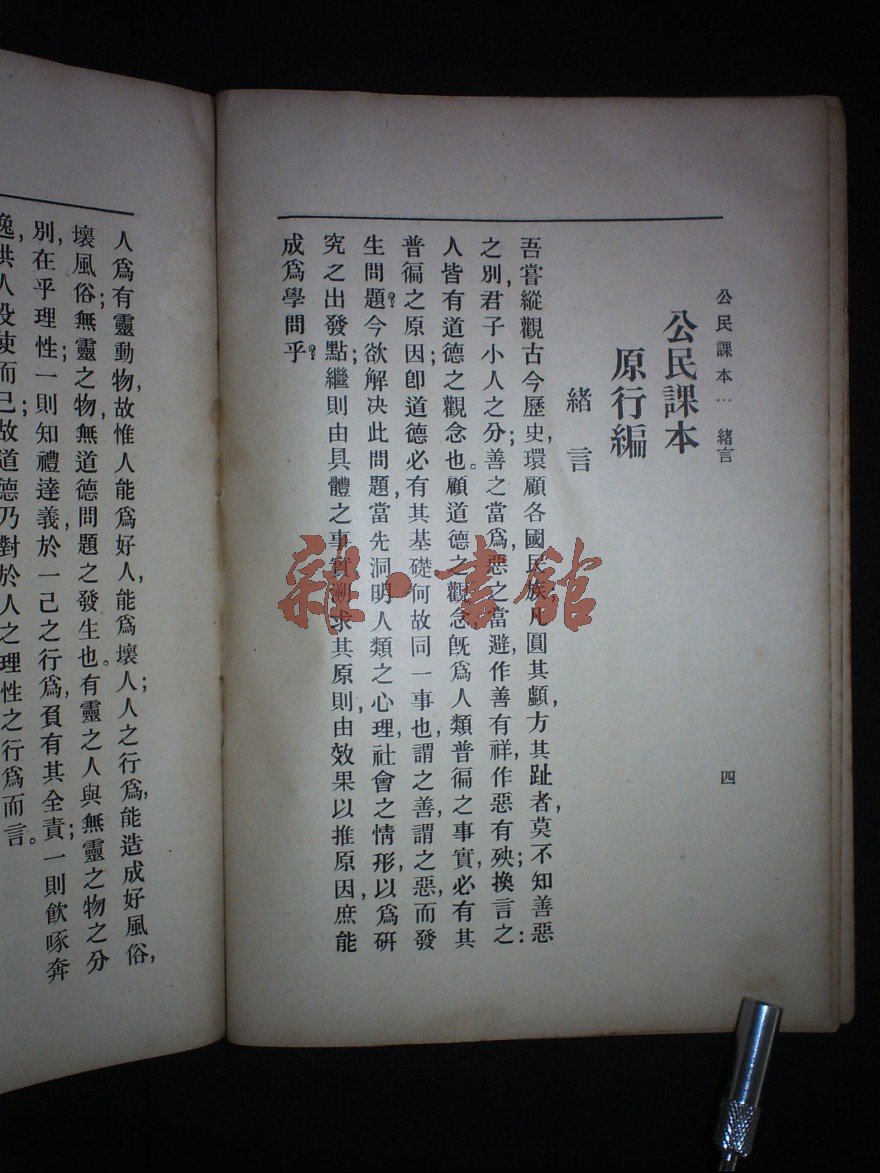 公民課本… 緒言 四
公民課本
原行編
緒言
吾嘗縱觀古今歷史,環顧各國民族,凡圓其顱,方其趾者,莫不知善惡
之別,君子小人之分;善之當爲,惡之當避,作善有祥,作惡有殃;換言之:
人皆有道德之觀念也。顧道德之觀念,旣爲人類普徧之事實,必有其
普徧之原因;卽道德必有其基礎何故同一事也,謂之善,謂之惡,而發
生問題?今欲解決此問題,當先洞明人類之心理,社會之情形,以爲研
究之出發點;繼則由具體之事實,溯求其原則,由效果以推原因,庶能
成爲學問乎?
人爲有靈動物,故惟人能爲好人,能爲壞人;人之行爲,能造成好風俗,
壞風俗;無靈之物,無道德問題之發生也。有靈之人與無靈之物之分
別,在乎理性;一則知禮達義,於一己之行爲,負有其全責;一則飮啄奔
逸,供人役使而已;故道德乃對於人之理性之行爲而言。
雜·書館